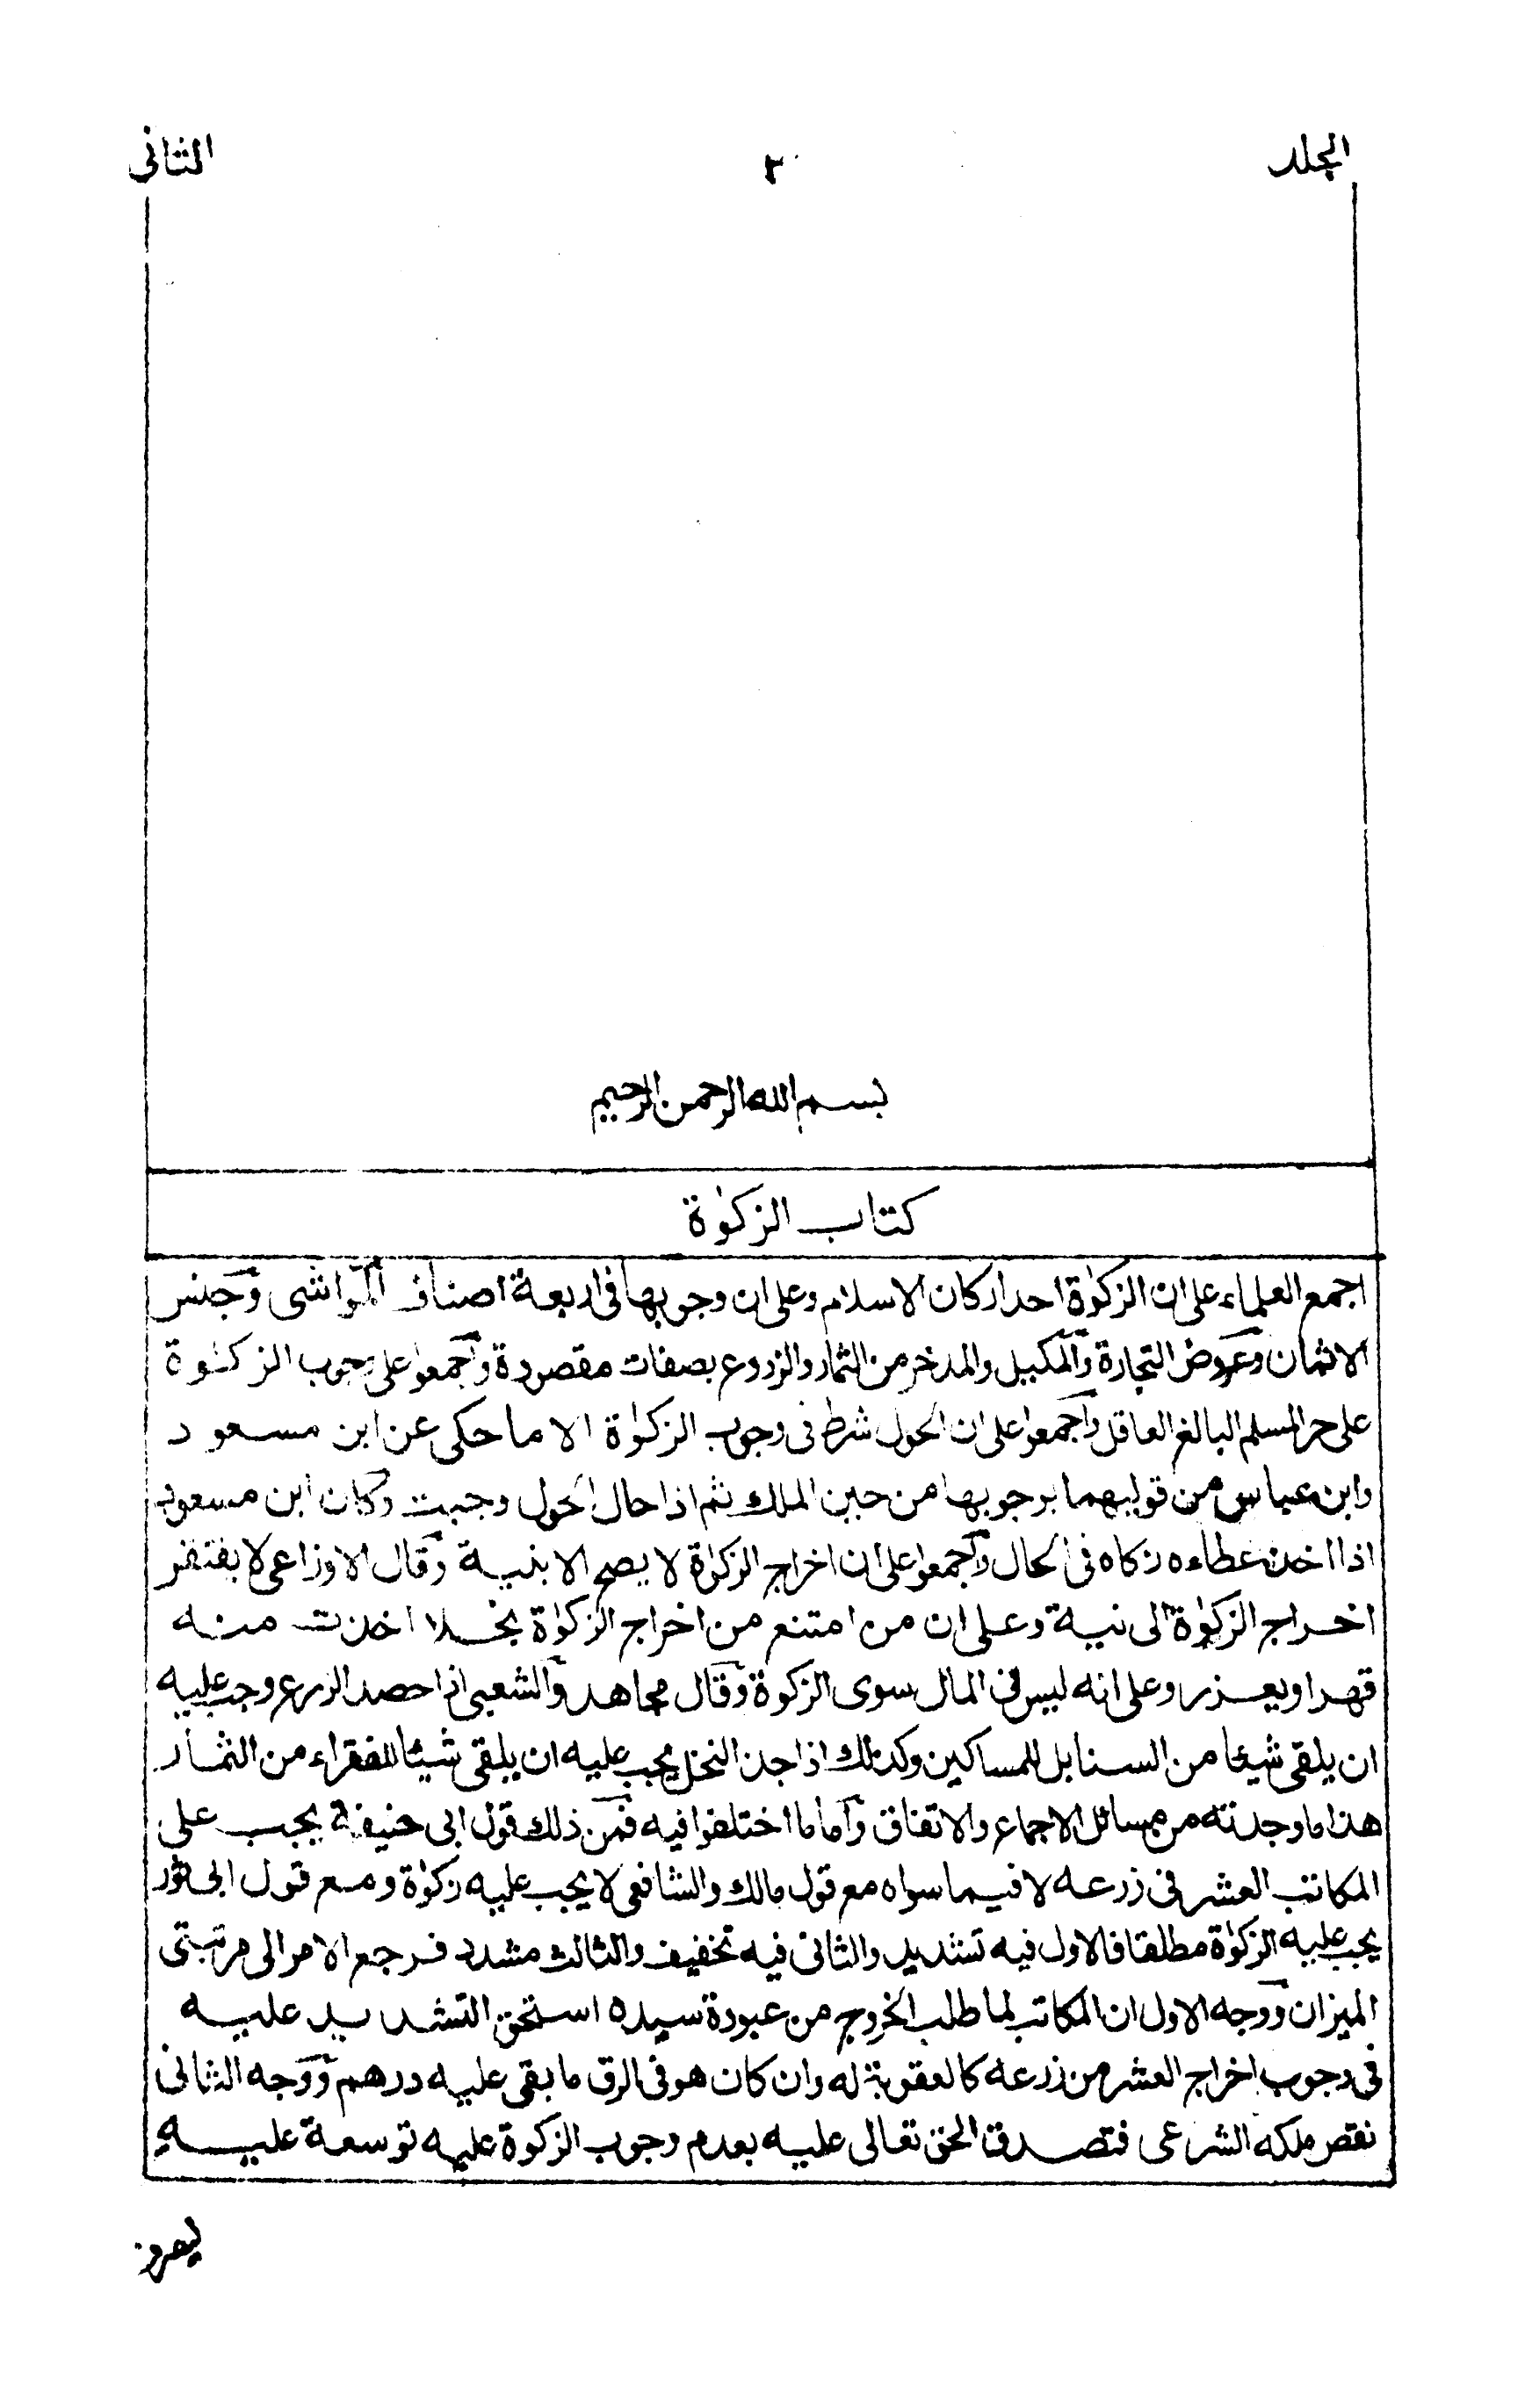 الجلد ٢ الثانى
بسم الله الرحمن الرحيم
كتاب الزكوٰة
اجمع العلماء على ان الزكوٰة احد اركان الاسلام وعلى ان وجوبها فى اربعة اصناف المواشى وجنس
الاثمان وعروض التجارة والمكيل والمدخر من الثمار والزروع بصفات مقصودة واجمعوا على وجوب الزكوٰة
على حر المسلم البالغ العاقل واجمعوا على ان الحول شرط فى وجوب الزكوٰة الا ما حكى عن ابن مسعود
وابن عباس من قوليهما بوجوبها من حين الملك ثم اذا حال الحول وجبت وكان ابن مسعود
اذا اخذ عطاءه زكاه فى الحال واجمعوا على ان اخراج الزكوٰة لا يصح الا بنية وقال الاوزاعى لا يفتقر
اخراج الزكوٰة الى نية وعلى ان من امتنع من اخراج الزكوٰة بخلا اخذت منه
قهرا ويعزر وعلى انه ليس فى المال سوى الزكوة وقال مجاهد والشعبى اذا حصد الزرع وجب عليه
ان يلقى شيئا من السنابل للمساكين وكذلك اذا جذ النخل يجب عليه ان يلقى شيئا للفقراء من الثمار
هذا ما وجدته من مسائل الاجماع والاتفاق واما ما اختلفوا فيه فمن ذلك قول ابى حنيفة يجب على
المكاتب العشر فى زرعه لا فيما سواه مع قول مالك والشافعى لا يجب عليه زكوٰة ومع قول ابى ثور
يجب عليه الزكوٰة مطلقا فالاول فيه تشديد والثانى فيه تخفيف والثالث مشدد فرجع الامر الى مرتبتى
الميزان ووجه الاول ان المكاتب لما طلب الخروج من عبودة سيده استحق التشديد عليه
فى وجوب اخراج العشر من زرعه كالعقوبة له وان كان هو فى الرق ما بقى عليه درهم ووجه الثانى
نقص ملكه الشرعى فتصدق الحق تعالى عليه بعدم وجوب الزكوة عليه توسعة عليه